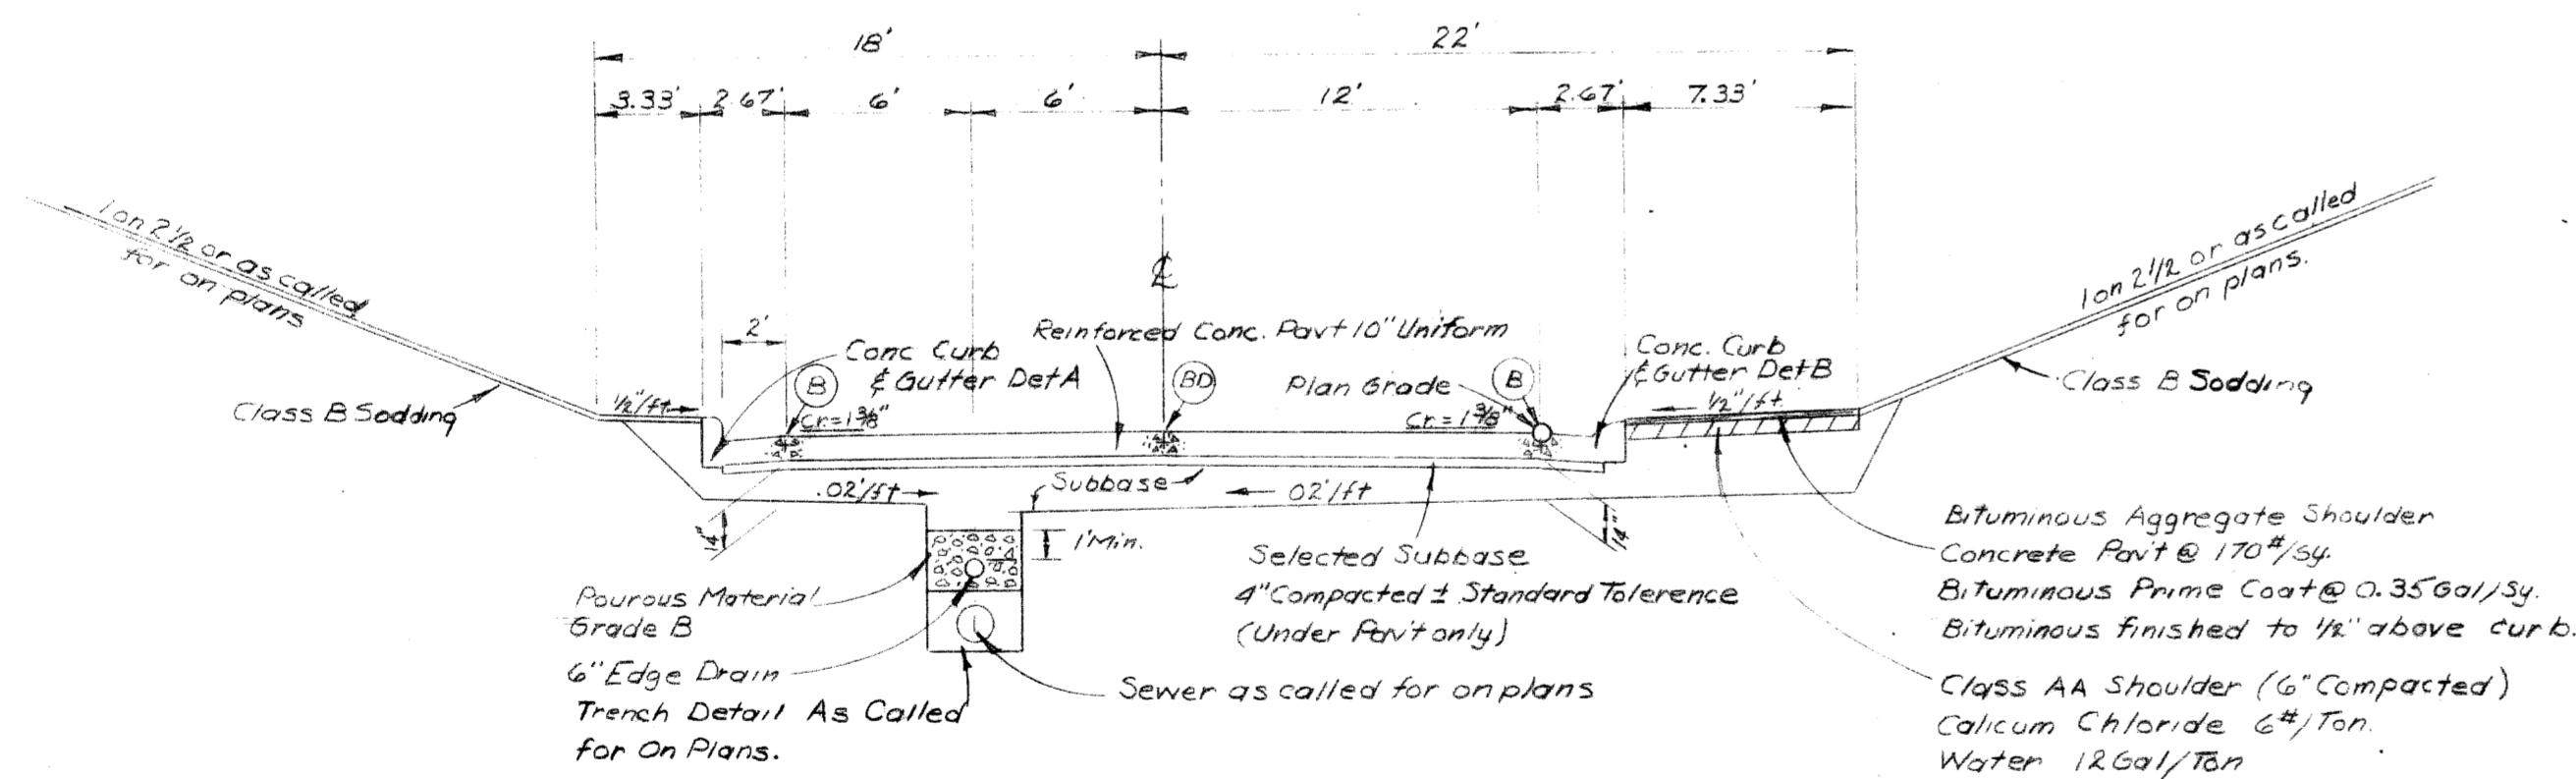 18'
22'
3.33'
2.67'
6'
6'
12'
2.67'
7.33'
1 on 2 1/2 or as called
for on plans
1 on 2 1/2 or as called
for on plans.
℄
2'
Conc Curb
& Gutter Det A
Reinforced Conc. Pav't 10" Uniform
Conc. Curb
& Gutter Det B
B
BD
Plan Grade
B
Class B Sodding
Class B Sodding
1/2"/ft
Cr.=1 3/8"
Cr.=1 3/8"
1/2"/ft.
.02'/ft
Subbase
02'/ft
14"
14"
1' Min.
Selected Subbase
4" Compacted ± Standard Tolerence
(Under Pav't only)
Pourous Material
Grade B
6" Edge Drain
Trench Detail As Called
for On Plans.
Sewer as called for on plans
Bituminous Aggregate Shoulder
Concrete Pav't @ 170#/Sy.
Bituminous Prime Coat @ 0.35 Gal/Sy.
Bituminous finished to 1/2" above curb.
Class AA Shoulder (6" Compacted)
Calicum Chloride 6#/Ton.
Water 12 Gal/Ton